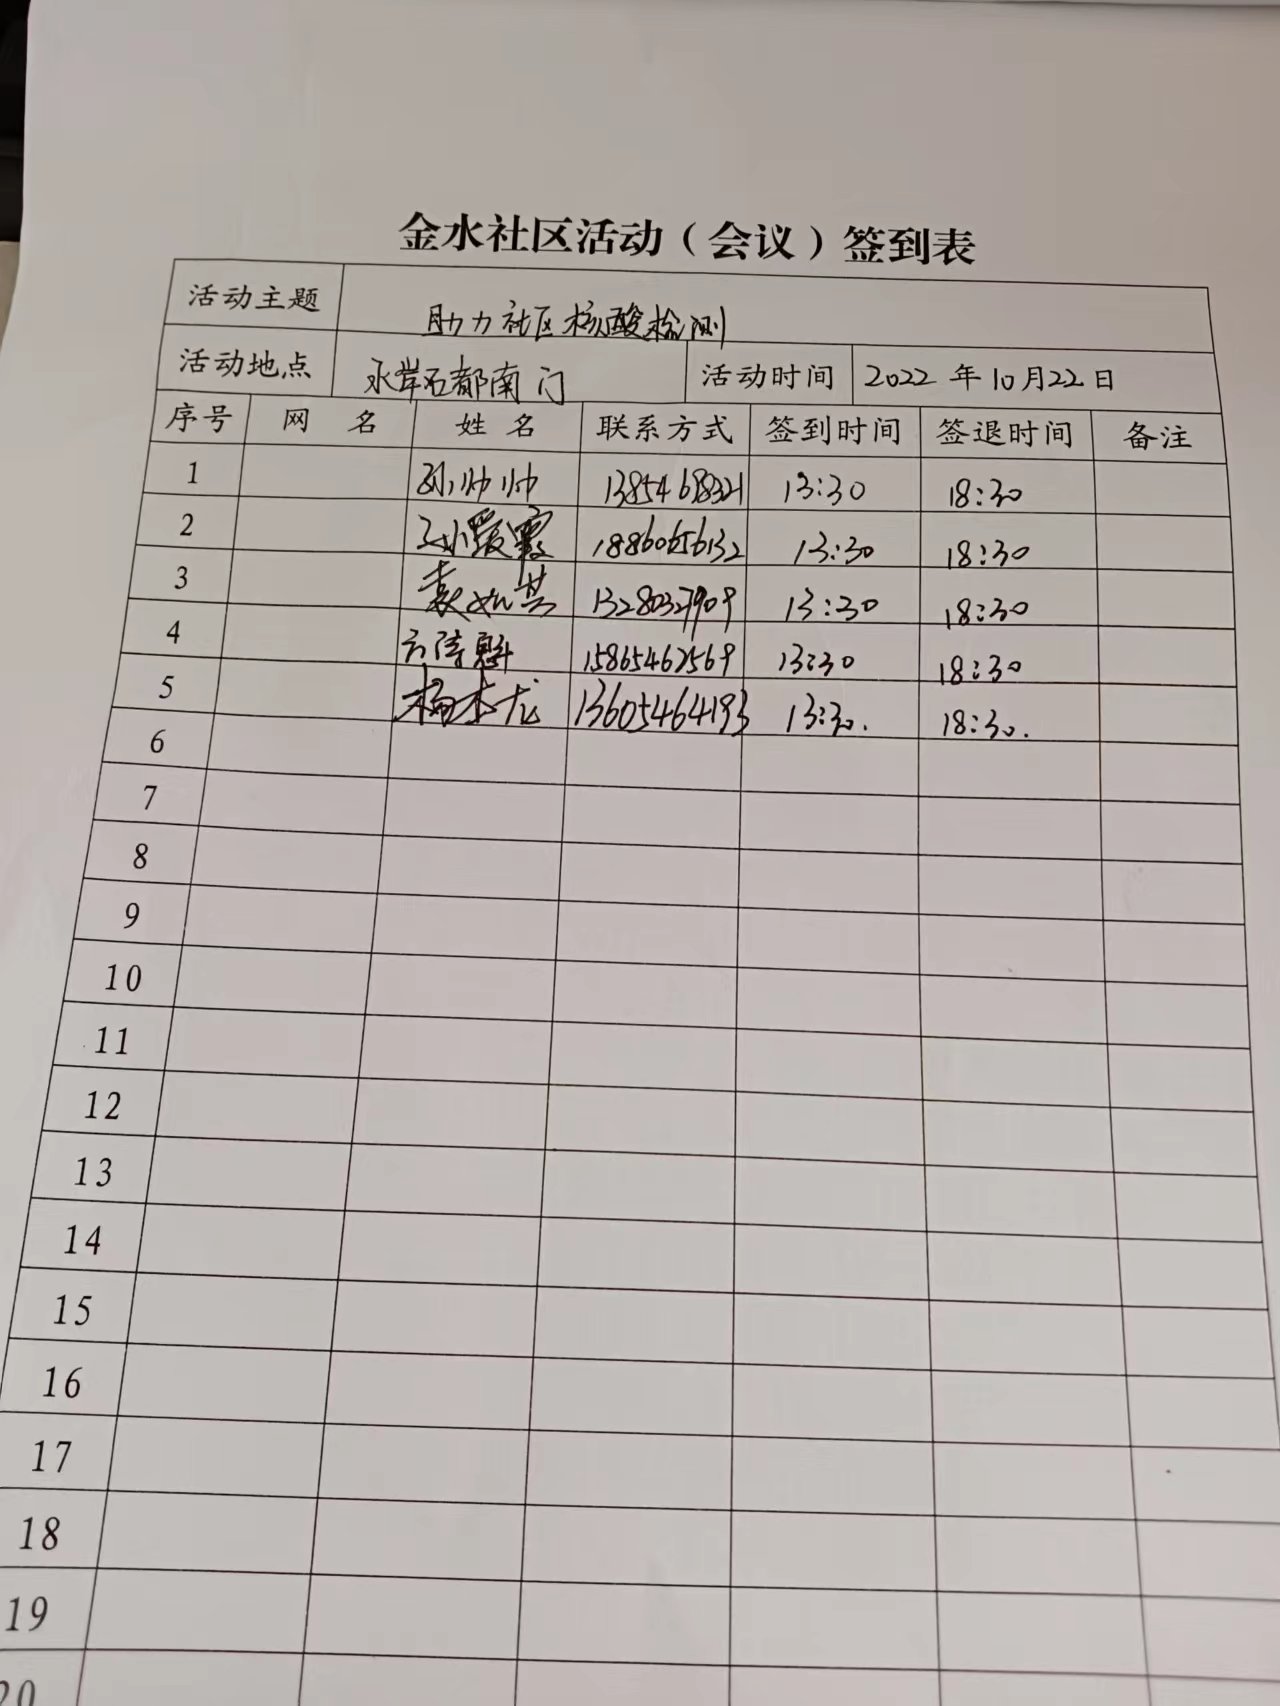 金水社区活动（会议）签到表
活动主题 助力社区核酸检测
活动地点 水岸名都南门 活动时间 2022年10月22日
序号 网 名 姓 名 联系方式 签到时间 签退时间 备注
1 孙帅帅 13854618321 13:30 18:30
2 孙爱霞 18860656132 13:30 18:30
3 袁如其 13280327909 13:30 18:30
4 15865462569 13:30 18:30
5 杨本龙 13605464193 13:30. 18:30.
6
7
8
9
10
11
12
13
14
15
16
17
18
19
20